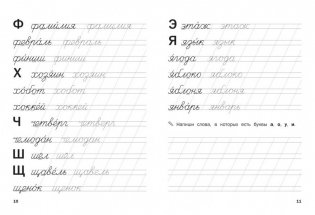 Ф фами́лия фамилия
февра́ль февраль
фи́ний финий
Х хозя́ин хозяин
хо́бот хобот
хокке́й хоккей
Ч четве́рг четверг
чемода́н чемодан
Ш шёл шёл
Щ щаве́ль щавель
щено́к щенок
10
Э эта́ж этаж
Я язы́к язык
я́года ягода
я́блоко яблоко
я́блоня яблоня
янва́рь январь
Напиши слова, в которых есть буквы а, о, у, и.
11